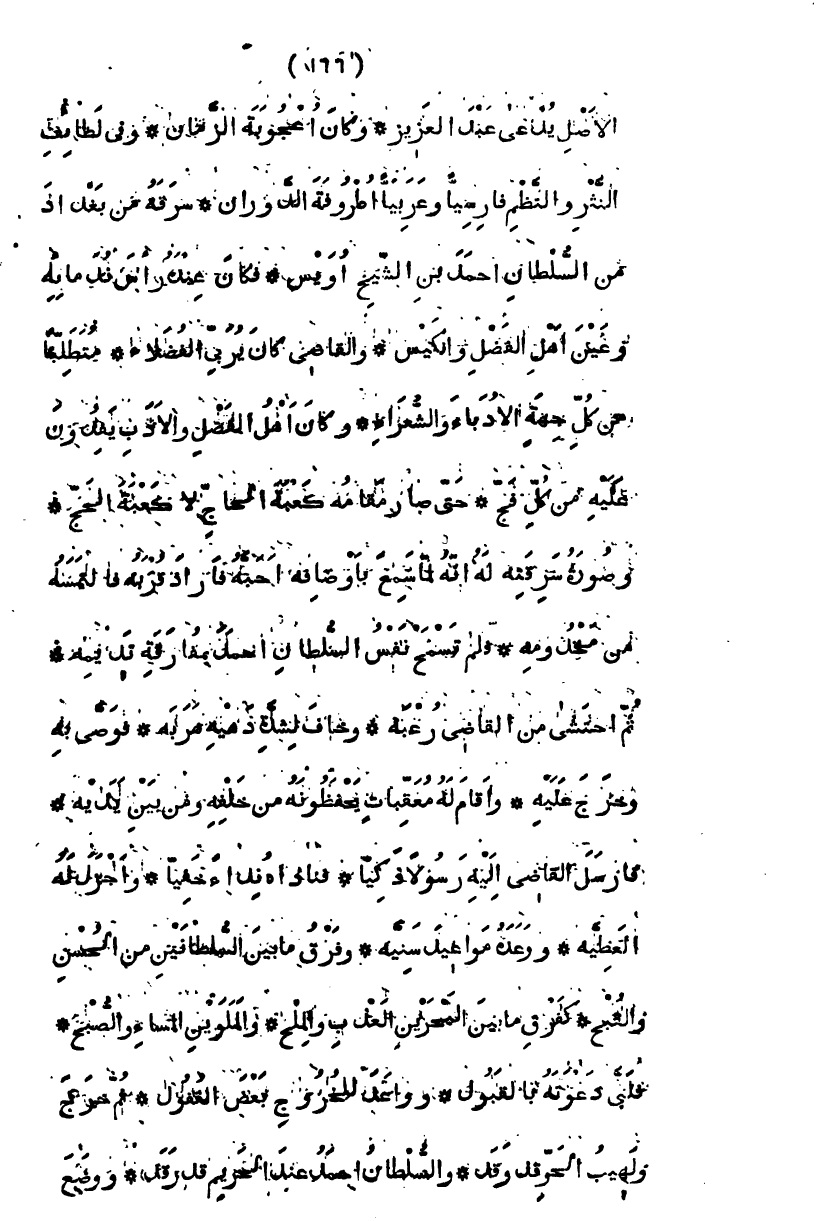 (١٦٦)
الاَصْلِ يُدْعٰى عَبْدَ العَزِيزِ * وَكَانَ اُعْجُوبَةَ الزَّمَانِ * وفى لَطَائِفِ
النَّثْرِ والنَّظْمِ فارِسِيًّا وعَرَبِيًّا اُطْرُوفَةَ الدَّوَرانِ * سَرَقَهُ من بَغْدَاذَ
من السُّلْطانِ احمدَ بنِ الشَّيخِ اُوَيْسٍ * فكانَ عِنْدَهُ رَأْسَ نُدَمائِهِ
وَعَيْنَ اَهْلِ الفَضْلِ وَالكَيْسِ * والقاضى كانَ يُرَبِّى الفُضَلاءَ * مُتَطَلِّبًا
من كلِّ جِهَةٍ الاُدَباءَ وَالشُّعَرَاءَ * وكانَ اَهْلُ الفَضْلِ والاَدَبِ يَفِدُونَ
عَلَيْهِ من كُلِّ فَجٍّ * حَتّى صارَ مَقَامُه كَعْبَةَ المُحاجِّ لا كَعْبَةَ الحَجِّ *
وصُورَةُ سَرِقَتِه لَهُ انّهُ لمّا سَمِعَ بأَوْصَافِه اَحَبَّهُ فأَرَادَ قُرْبَه فالتَمَسَهُ
من مَخْدُومِه * ولمْ تَسْمَحْ نَفْسُ السُّلطانِ احمدَ بمُفارَقَةِ نَدِيمِه *
ثُمَّ احتَشٰى من القاضى رُعْبَه * وخافَ لِشِدَّةِ دَهْيِهِ هَرَبَه * فوَصَّى بِهِ
وحَرَّجَ عَلَيْهِ * واَقامَ لَهُ مُعَقِّباتٍ يَحْفَظُونَهُ من خَلْفِهِ ومن بَيْنِ يَدَيْهِ *
فارسَلَ القاضى اِلَيْهِ رَسُولًا ذَكِيًّا * فناداهُ نِداءً خَفِيًّا * واَجْزَلَ لَهُ
العَطِيَّه * ووَعَدَهُ مَواعِيدَ سَنِيَّه * وفَرْقُ مابينَ السُّلطانَيْنِ من الحُسْنِ
والقُبْحِ * كَفَرْقِ مابينَ البَحْرَيْنِ العَذْبِ والمِلْحِ * والمَلَوَيْنِ المَساءِ والصُّبْحِ *
فلَبَّى دَعْوَتَهُ بالقَبُولِ * وواعَدَ للخُرُوجِ بَعْضَ القُفُولِ * ثُمَّ خرَجَ
ولَهِيبُ الحَرِّ قد وَقَدَ * والسُّلْطانُ احمدُ عندَ الحَرِيمِ قد رَقَدَ * ووضَعَ